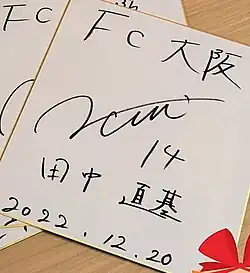 FC 大阪
14
田中 直基
2022.12.20